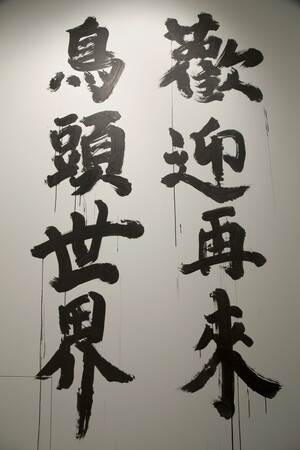 歡迎再來
鳥頭世界